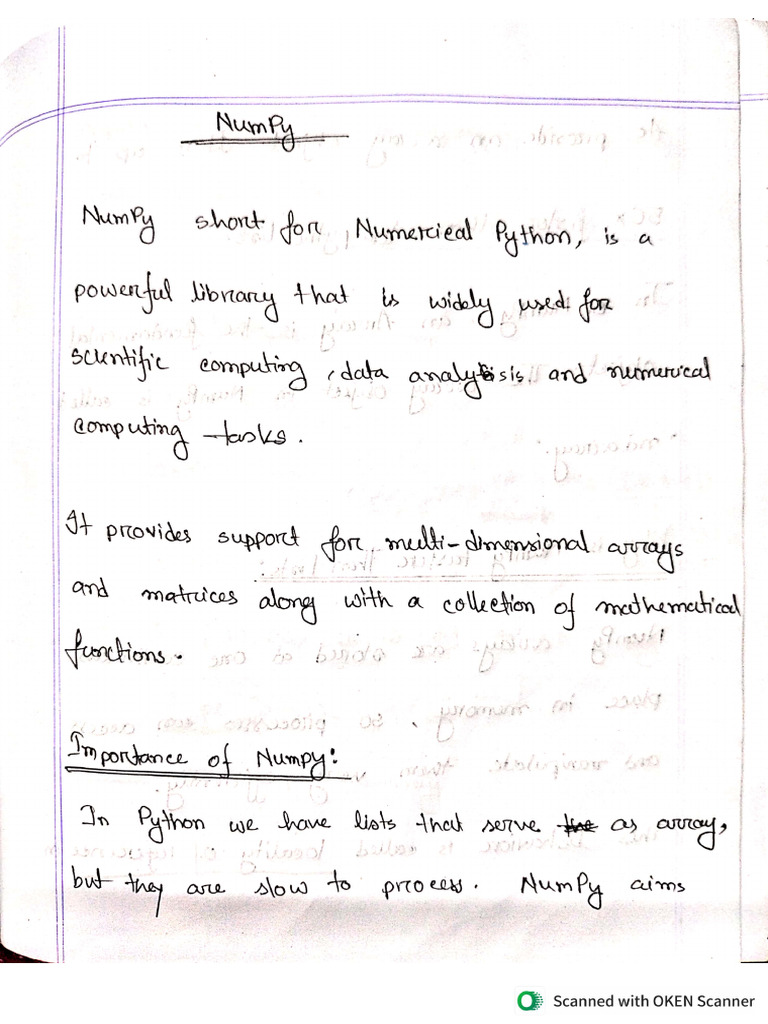 NumPy
NumPy short for, Numercical Python, is a
powerful library that is widely used for
scientific computing, data analysis and numerical
computing tasks.
It provides support for multi-dimensional arrays
and matrices along with a collection of mathematical
functions.
Importance of Numpy:
In Python we have lists that serve as array,
but they are slow to process. NumPy aims
Scanned with OKEN Scanner